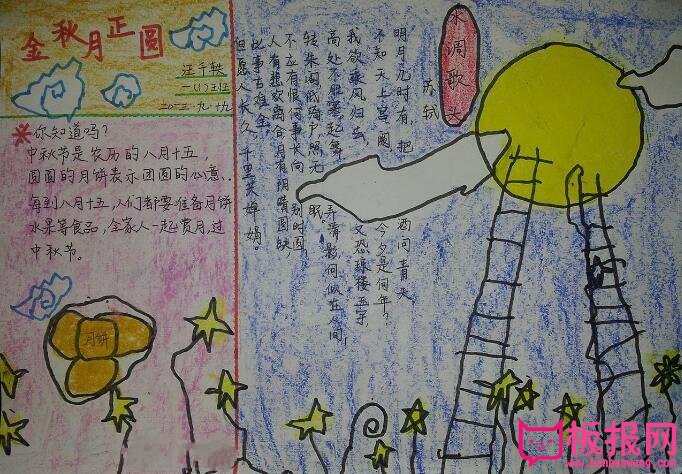 金秋月正圆
汪千轶
一(1)班
二〇一三.九.十九
你知道吗?
中秋节是农历的八月十五，
圆圆的月饼表示团圆的心意。
每到八月十五，人们都要准备月饼
水果等食品，全家人一起赏月，过
中秋节。
月饼
水调歌头
苏轼
明月几时有，把酒问青天，
不知天上宫阙，今夕是何年？
我欲乘风归去，又恐琼楼玉宇，
高处不胜寒，起舞弄清影何似在人间！
转朱阁低绮户照无眠。
不应有恨何事长向别时圆，
人有悲欢离合月有阴晴圆缺，
此事古难全。
但愿人长久，千里共婵娟。
板报网
www.banbaowang.com